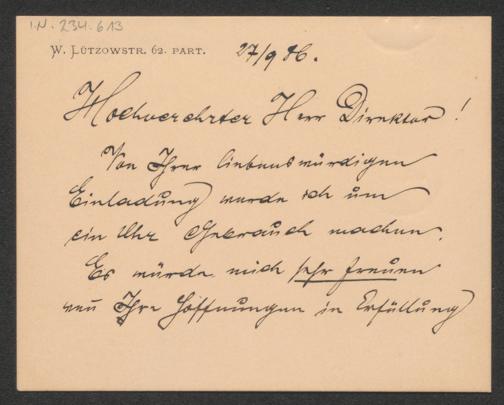 I.N. 234.613
W. Lützowstr. 62. part.
27/9 86.
Hochverehrter Herr Direktor!
Von Ihrer liebenswürdigen
Einladung werde ich um
ein Uhr Gebrauch machen.
Es würde mich sehr freuen
wenn Ihre Hoffnungen in Erfüllung